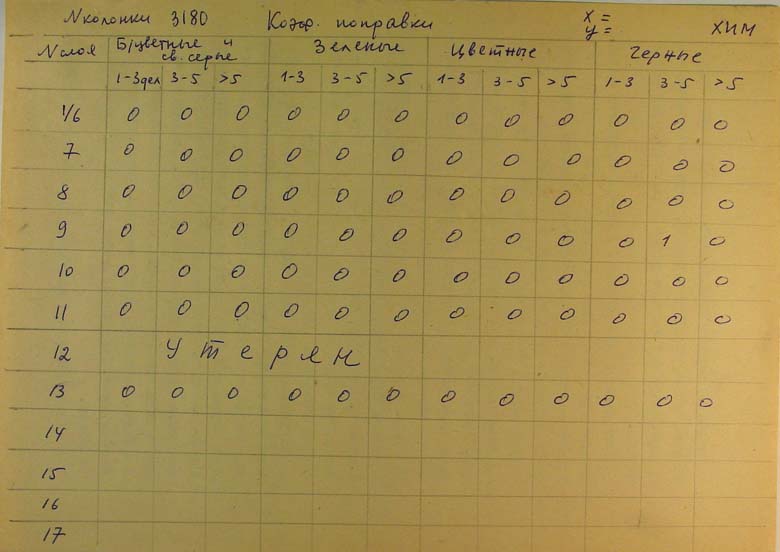 N колонки 3180 Коэф. поправки x = ХИМ
y =
N слоя Б/цветные и св. серые Зеленые Цветные Черные
1-3 дел 3-5 >5 1-3 3-5 >5 1-3 3-5 >5 1-3 3-5 >5
1/6 0 0 0 0 0 0 0 0 0 0 0 0
7 0 0 0 0 0 0 0 0 0 0 0 0
8 0 0 0 0 0 0 0 0 0 0 0 0
9 0 0 0 0 0 0 0 0 0 0 1 0
10 0 0 0 0 0 0 0 0 0 0 0 0
11 0 0 0 0 0 0 0 0 0 0 0 0
12 Утерян
13 0 0 0 0 0 0 0 0 0 0 0 0
14
15
16
17